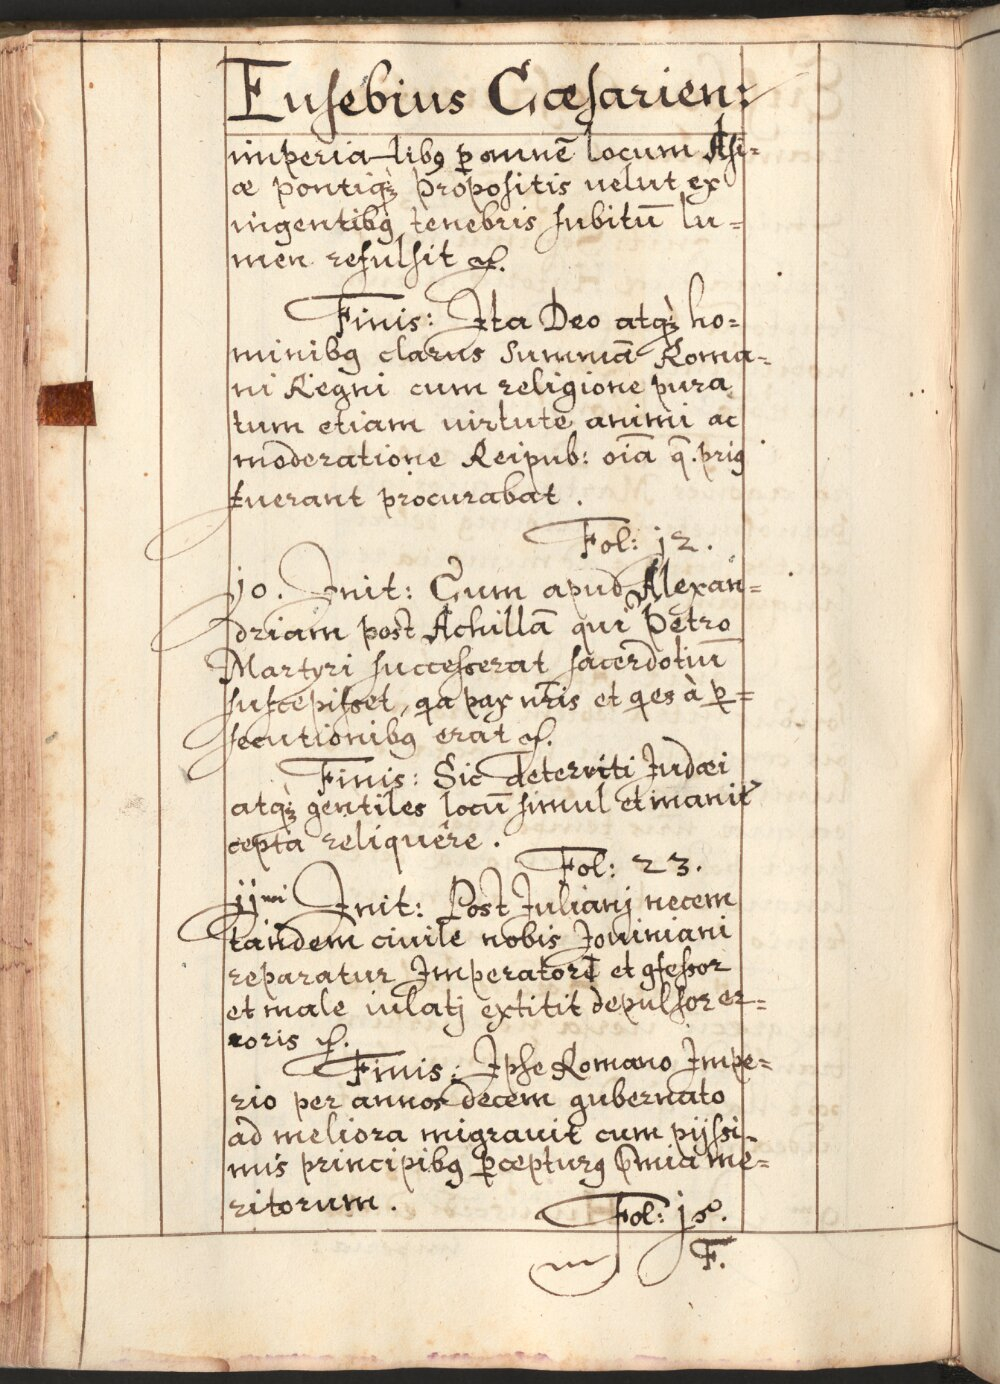 Eusebius Cæsarien:
imperia-libꝯ ꝑ omnē locum Asi=
æ pontiqꝫ propositis uelut ex
ingentibꝯ tenebris subitū lu=
men refulsit ꝛc.
Finis: Ita Deo atqꝫ ho=
minibꝯ clarus summā Roma=
ni Regni cum religione pura
tum etiam uirtute animi ac
moderatione Reipub: oīa q̄. priꝯ
fuerant procurabat.
Fol: 12.
10. Init: Cum apud Alexan=
driam post Achillā qui Petro
Martyri successerat sacerdotiū
suscepisset, qa pax nr̄is et qes à ꝑ=
secutionibꝯ erat ꝛc.
Finis: Sic deterriti Iudæi
atqꝫ gentiles locū simul et manit
cepta reliquêre.
Fol: 23.
11mi Init: Post Iuliani necem
tandem ciuile nobis Iouiniani
reparatur Imperatore et ꝯfessor
et male iulatj extitit depulsor er=
roris ꝛc.
Finis: Ipse Romano Impe=
rio per annos decem gubernato
ad meliora migrauit cum pijssi=
mis principibꝯ ꝑcepturꝯ p̄mia me=
ritorum.
Fol: 18.
F.